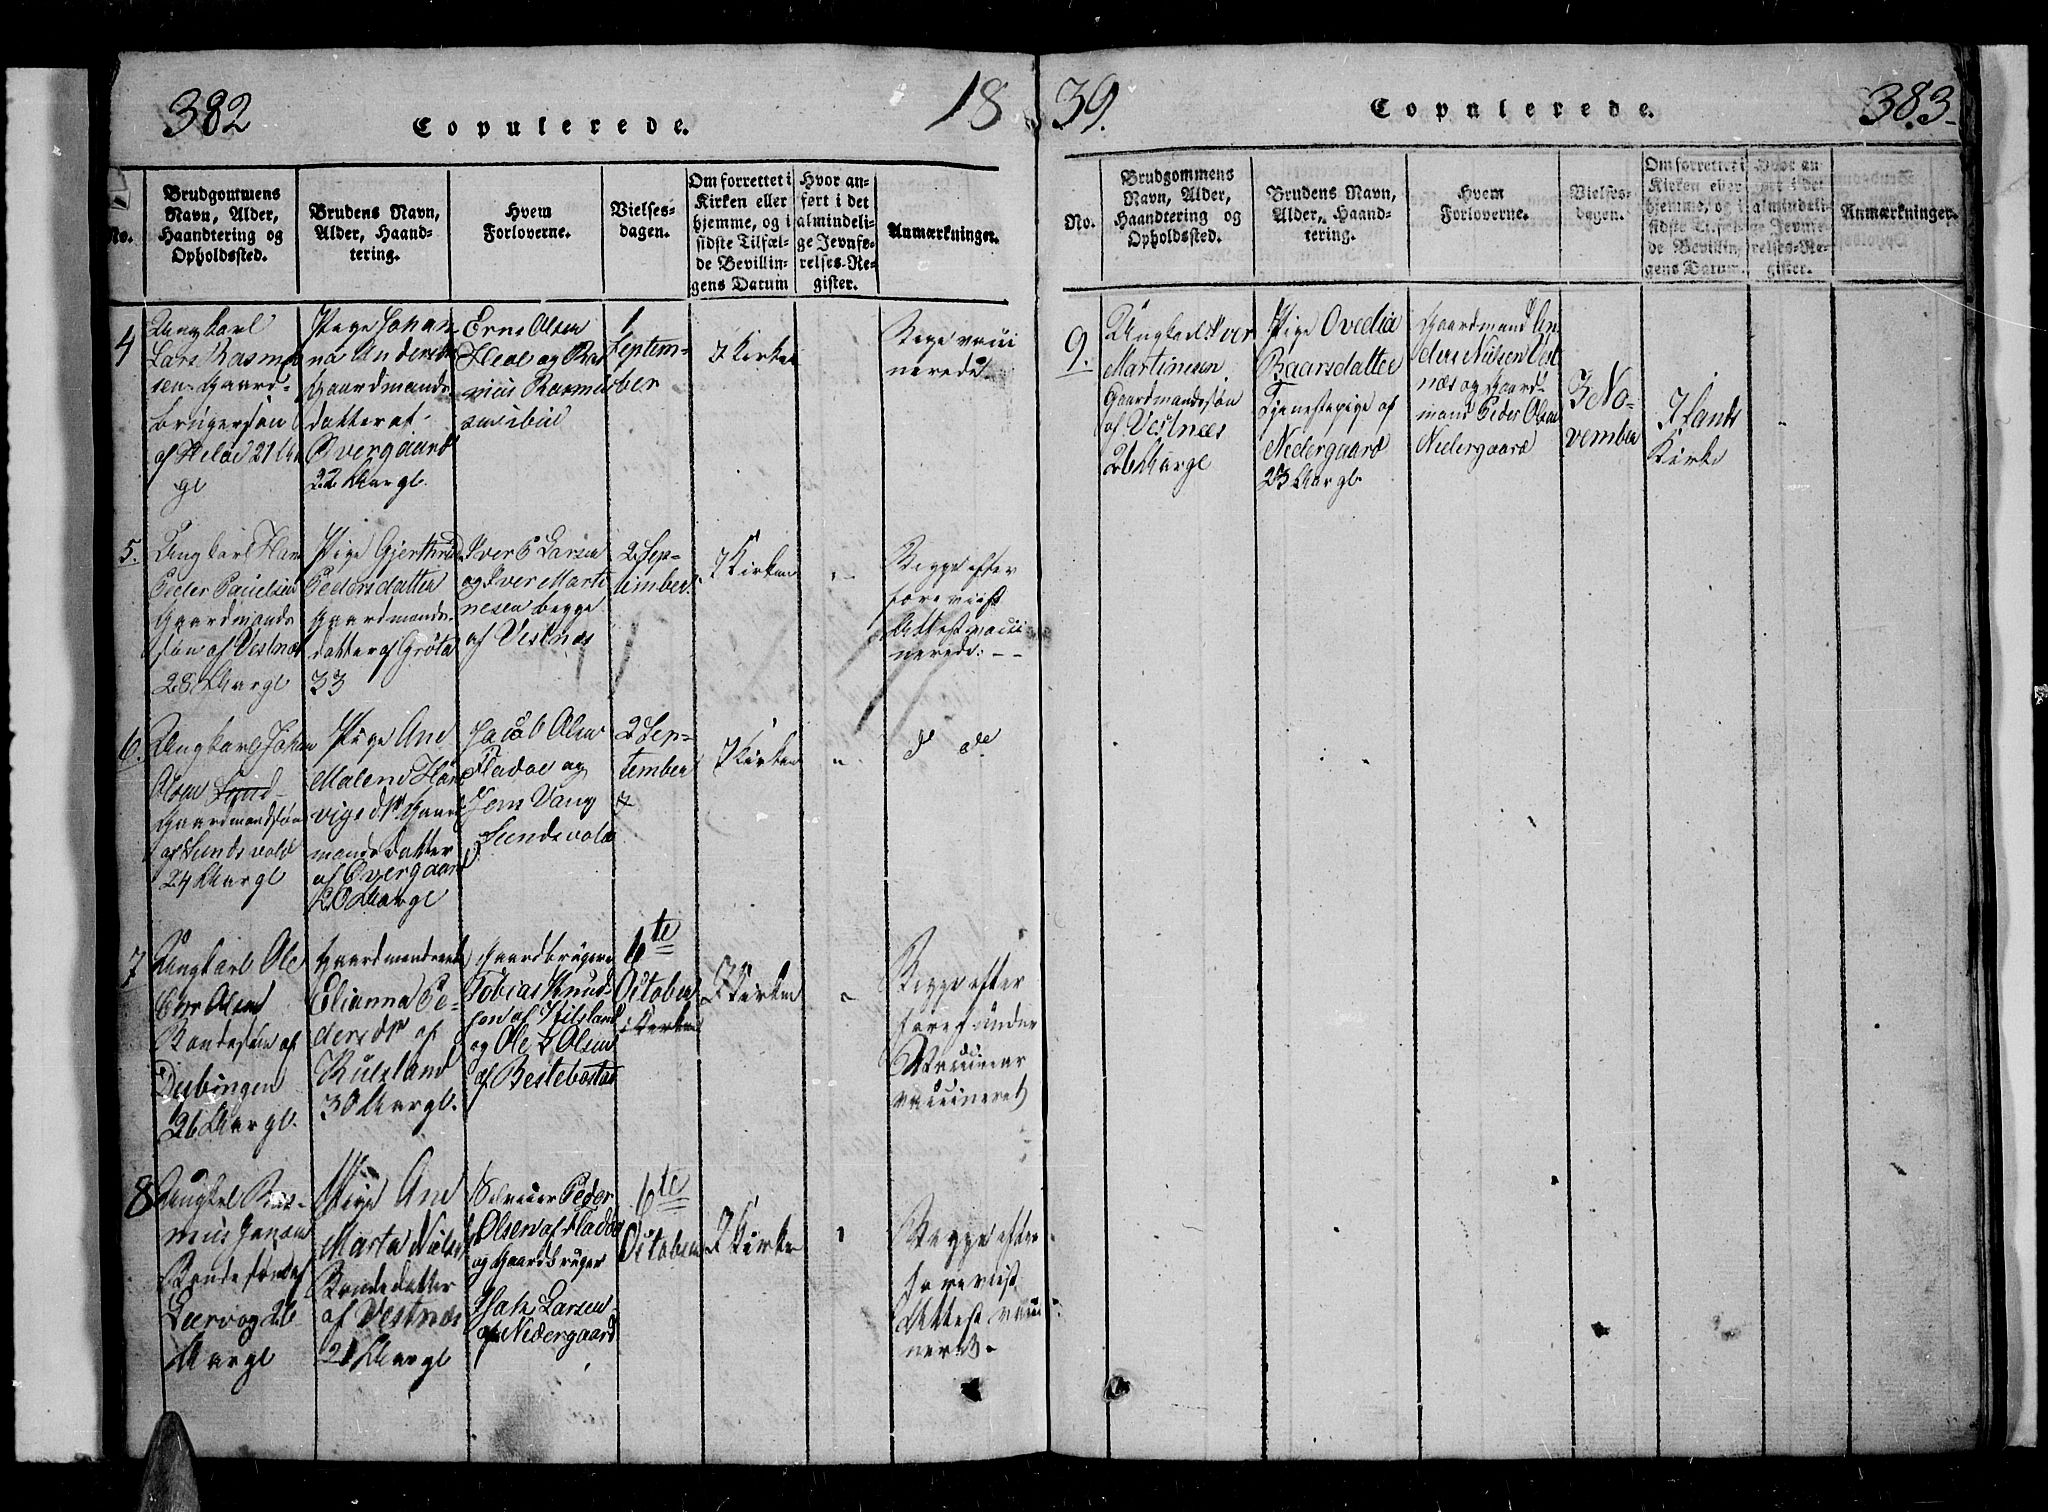 382
Copulerede.
18
No.
Brudgommens
Navn, Alder,
Haandtering og
Opholdssted.
Brudens Navn,
Alder, Haand-
tering.
Hvem
Forloverne.
Vielses-
dagen.
Om forrettet i
Kirken eller
hjemme, og i
sidste Tilfæl-
de Bevillin-
gens Datum
Hvor an-
ført i det
almindeli-
ge Jevnfø-
relses-Re-
gister.
Anmærkninger.
4
Ungkarl
Lars Rasmu
sen Gaard-
brugersøn
af 21 Aa
gl
Pige Johan
na Anders
Gaardmands
datter af
Overgaard
22 Aar gl.
Erne Olsen
og Ras
mus Rasmus
sen
1
Septem-
ber
I Kirken
Begge vacci
nerede
5.
Ungkarl Han
Peder Paulsen
Gaardmands
søn af Vestnæs
28 Aar gl
Pige Gjertrud
Pedersdatter
Gaardmands-
datter af Grøta
33
Iver P Larsen
og Iver Marti
nesen begge
af Vestnæs
2 Sep-
tember
I Kirken
"
Begge efter
foreviist
Attest vacci
nerede.
6.
Ungkarl Johan
Olsen Sund
Gaardmandssøn
af Sundsvold
24 Aar gl
Pige Ane
Malene
vigsdr Gaar
mands datter
af Overgaard
20 Aar gl
Jacob Olsen
Fladøe og
Jens Vang
Sundsvold
2 Sep-
tember
I Kirken
"
do de
7
Ungkarl Ole
Olsen
Bondesøn af
26 Aar gl.
Gaardmandsenk
Elianna Pe-
dersdr af
30 Aar gl.
Gaardbruger
Tobias Knud-
sen af
og Ole Olsen
af Bestebostad
6te
October
i Kirken
I Kirken
"
Begge efter
vaccineret
8
Ungkl Ras-
mus Jensen
Bondesøn af
Leervog 26
Aar gl
Pige Ane
Marta Niels
Bondedatter
af Vestnæs
21 Aar gl
Peder
Olsen af Fladøe
og Gaardbruger
Larsen
af Nedergaard
6te
October
I Kirke
Begge efter
foreviist
Attest vacci
neret.
39.
Copulerede.
383
No.
Brudgommens
Navn, Alder,
Haandtering og
Opholdssted.
Brudens Navn,
Alder, Haand-
tering.
Hvem
Forloverne.
Vielses-
dagen.
Om forrettet i
Kirken eller
hjemme, og i
sidste Tilfæl-
de Bevillin-
gens Datum.
Hvor an-
ført i det
almindeli-
ge Jevnfø-
relses-Re-
gister.
Anmærkninger.
9.
Ungkarl Iver
Martinesen
Gaardmandssøn
af Vestnæs
26 Aar gl
Pige Ovedia
Baarsdatter
Tjenestepige af
Nedergaard
23 Aar gl.
Gaardmand An
ders Nilsen Vest
næs og Gaard-
mand Peder Olsen
Nedergaard
3 No-
vember
I lands
Kirke